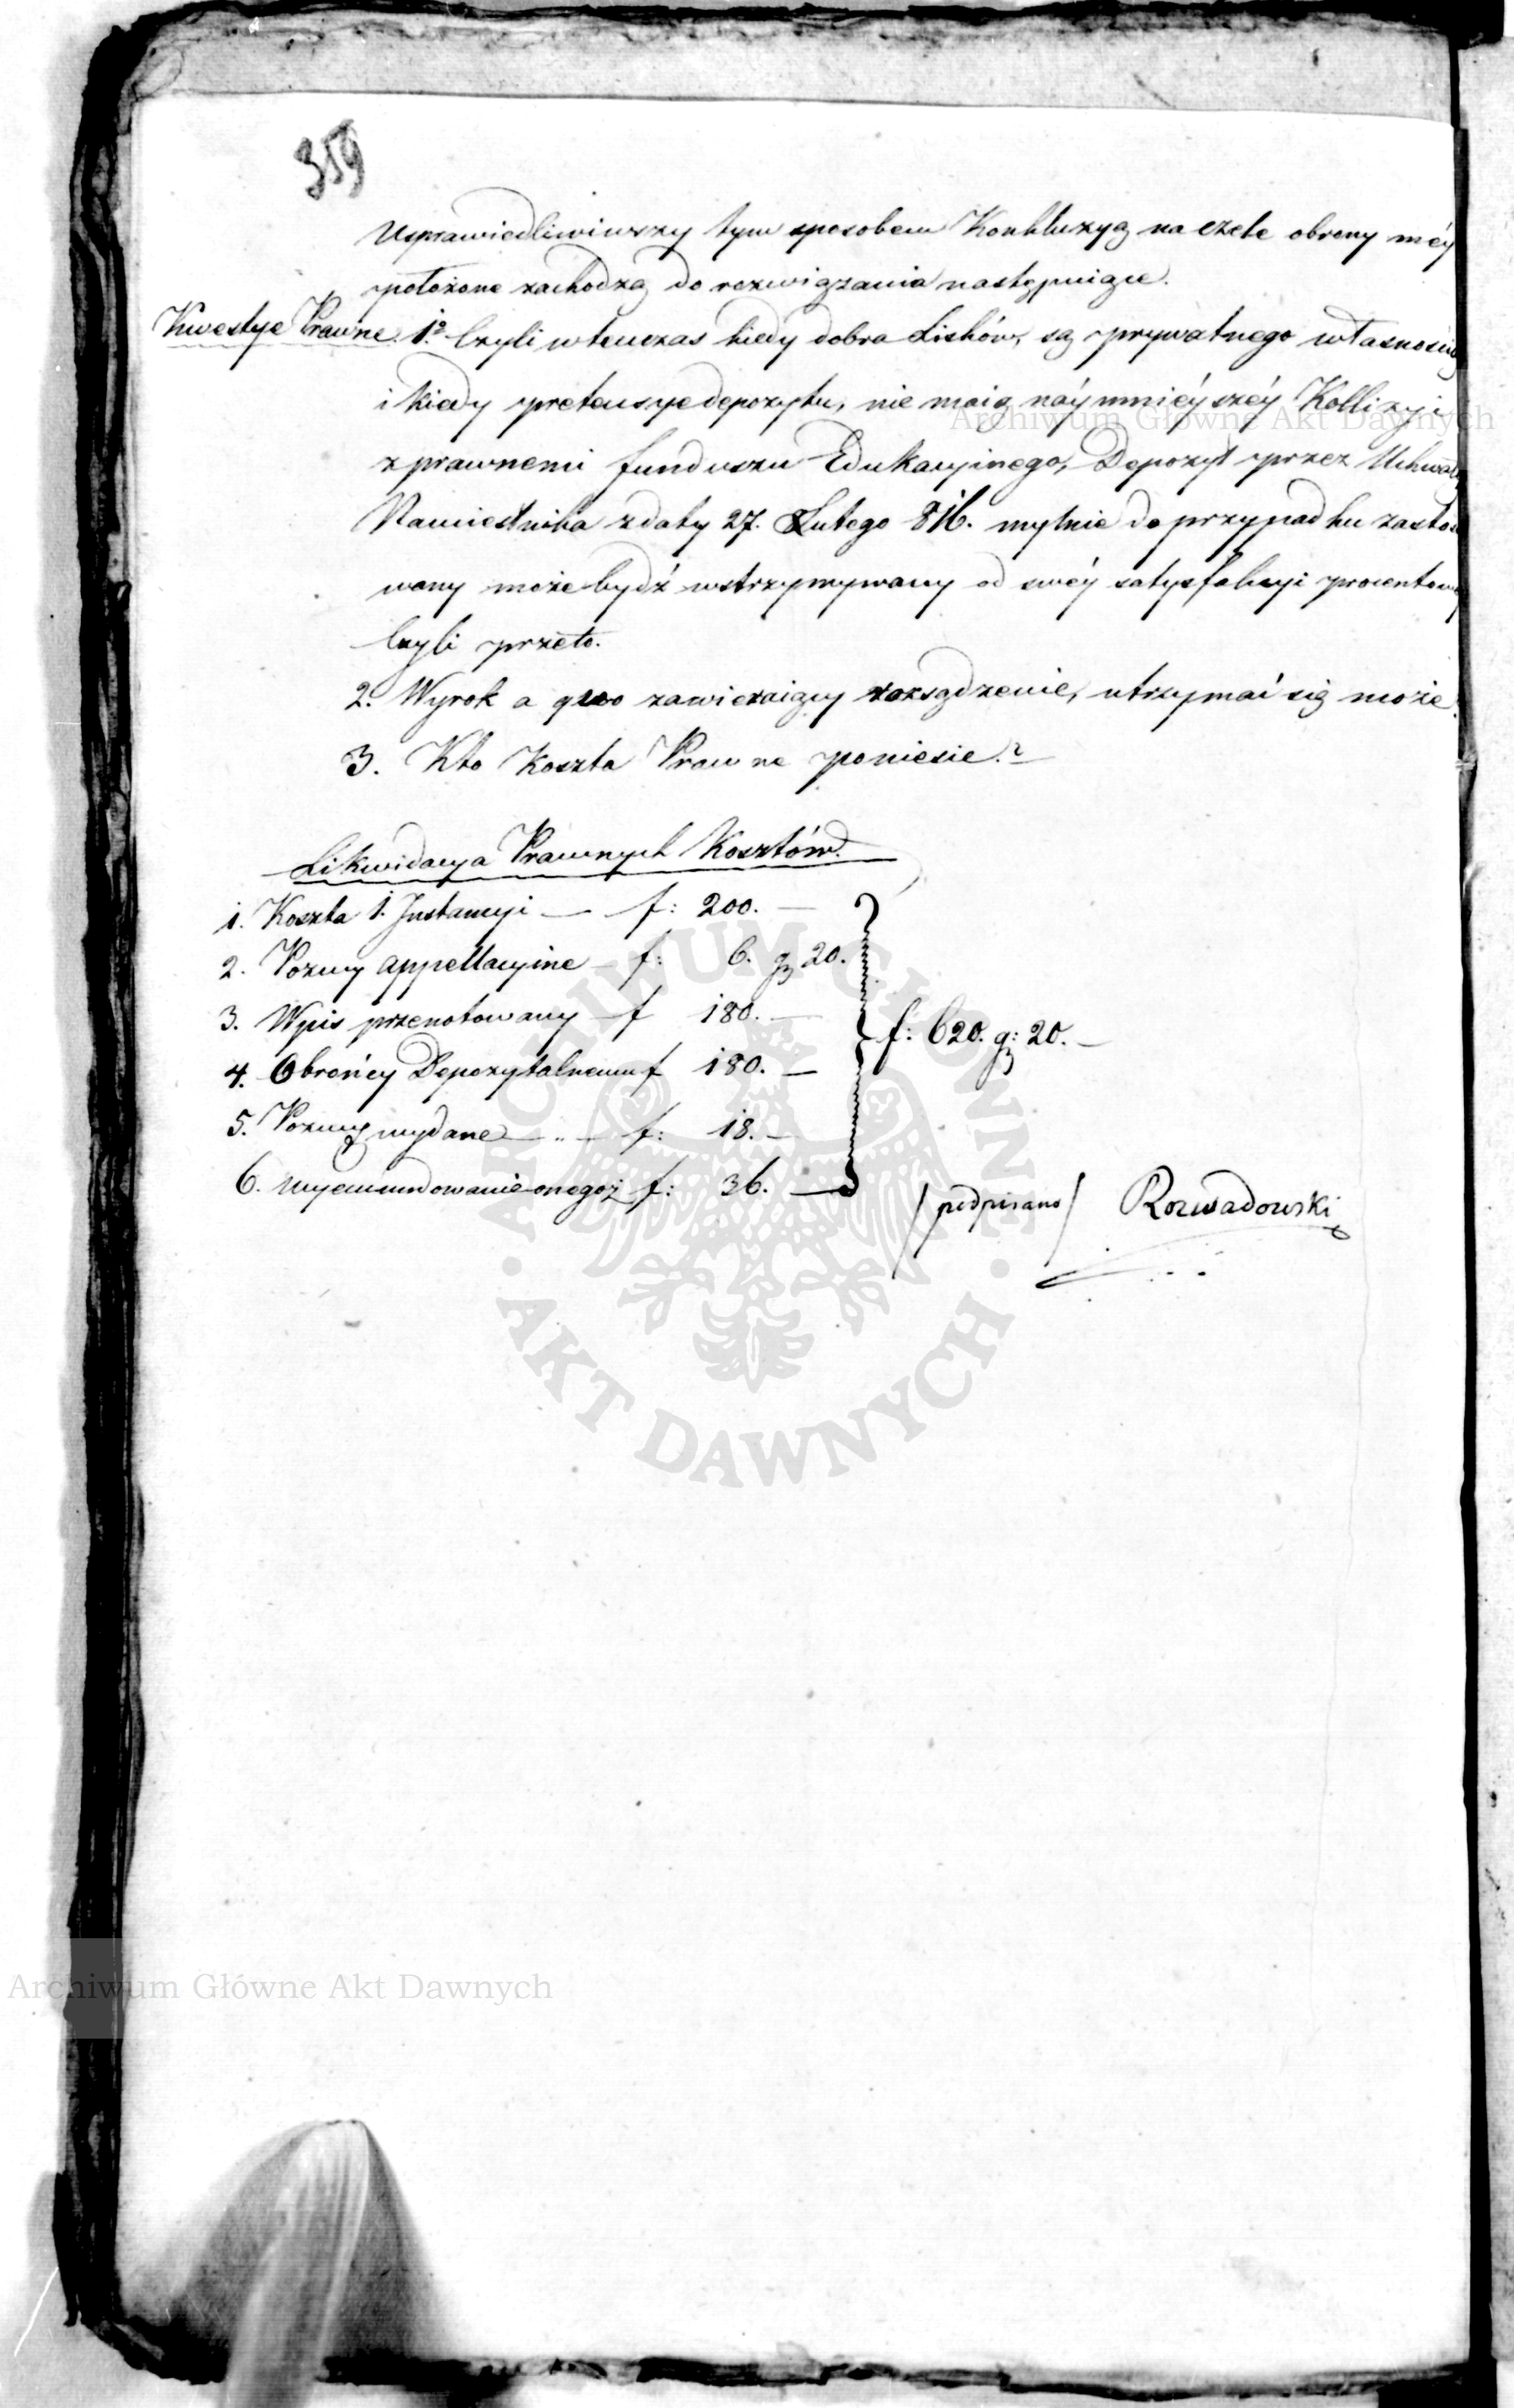 359
Usprawiedliwiwszy tym sposobem Konkluzyą na czele obrony méy
położone zachodzą do rozwiązania następuiące.
Kwestye Prawne. 1º Czyli wtenczas kiedy dobra Lisków, są prywatnego własnością
i kiedy pretensye depozytu, nie maią náymnieyszéy Kollizyi
z prawnemi funduszu Edukacyinego, Depozyt przez Uchwałę
Namiestnika z daty 27. Lutego 816. mylnie do przypadku zastoso
wany może bydź wstrzymywany od swéy satysfakcyi procentowéy
Czyli przeto.
2. Wyrok a quo zawieraiący rozsądzenie, utrzymać się może?
3. Kto Koszta Prawne poniesie?
Likwidacya Prawnych Kosztów.
1. Koszta 1. Instancyi — f: 200. —
2. Pozwy appellacyine — f: 6. g 20.
3. Wpis przenotowany — f 180. —
4. Obrońcy Depozytalnemu f 180. —
5. Pozwy wydane — „ — f: 18. —
6. wyemundowanie onegoż f: 36. —
f: 620. g: 20. —
/podpisano/ Rozwadowski
Archiwum Główne Akt Dawnych
ARCHIWUM GŁÓWNE · AKT DAWNYCH ·
Archiwum Główne Akt Dawnych